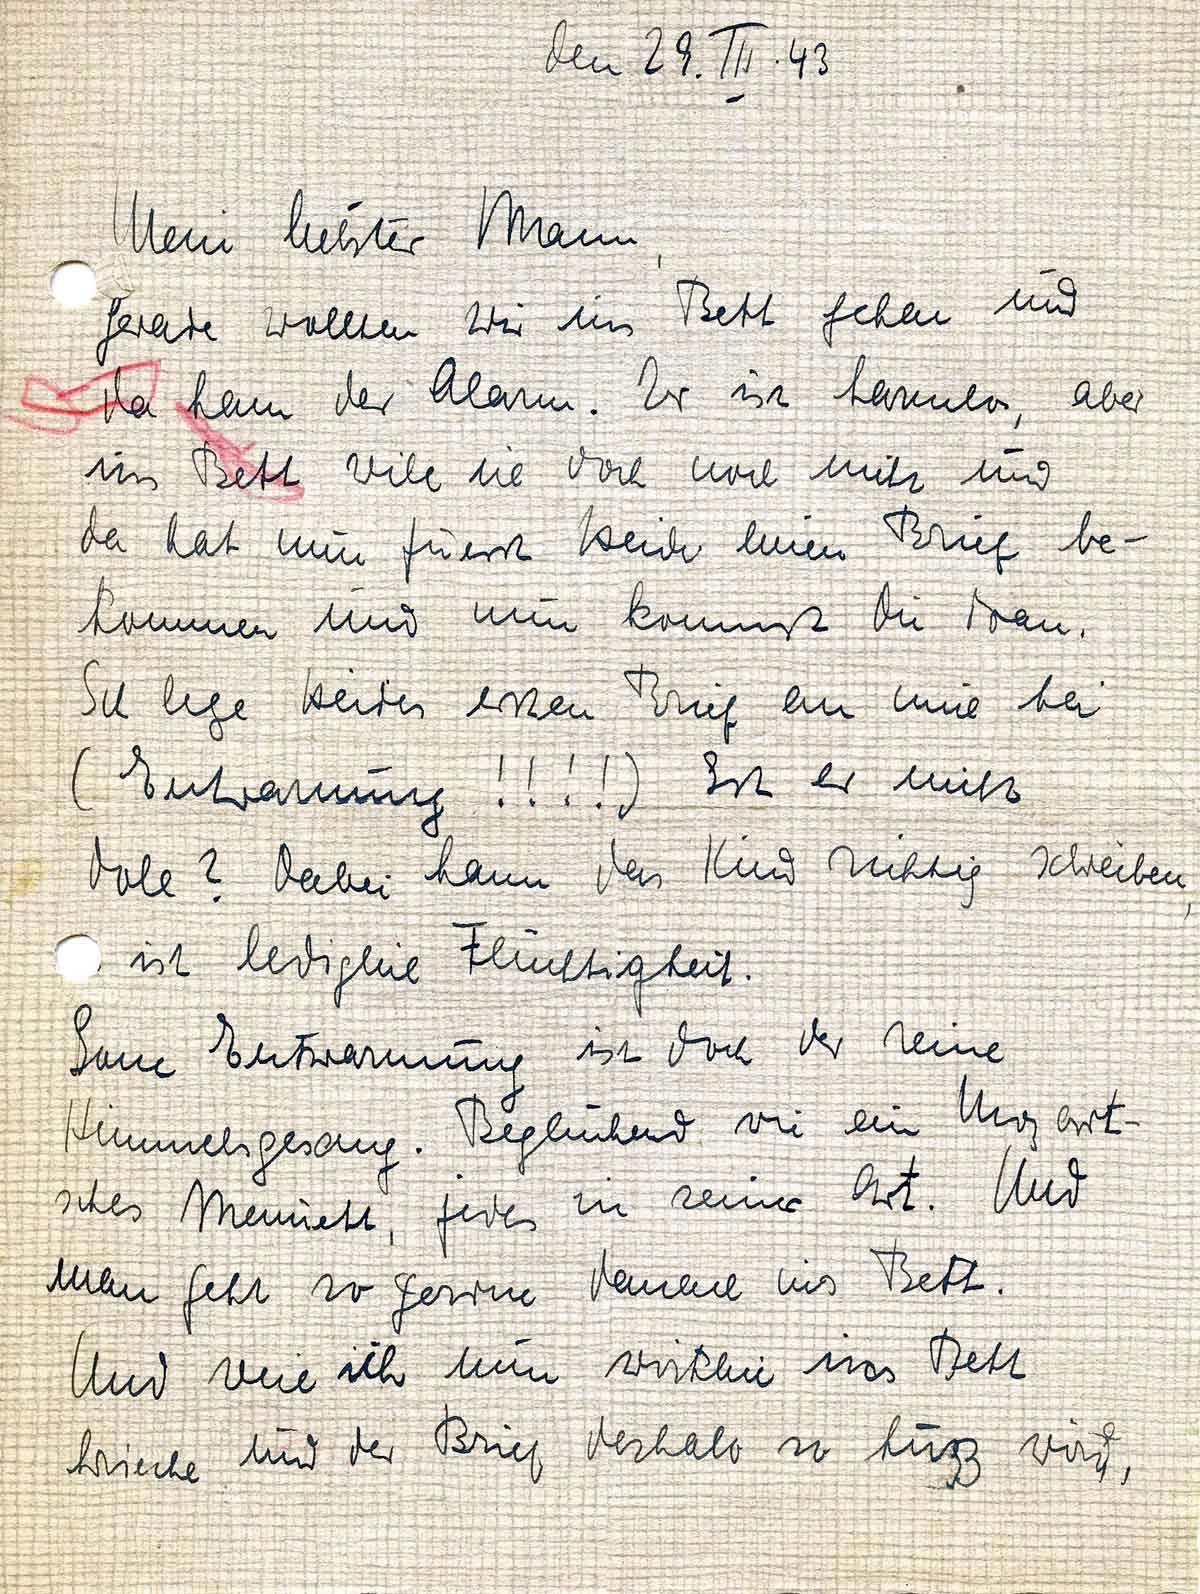 den 29. III. 43
Mein liebster Mann,
gerade wollten wir ins Bett gehen und
da kam der Alarm. Er ist harmlos, aber
ins Bett will sie doch noch nicht und
da hat nun zuerst Heide einen Brief be-
kommen und nun kommst Du dran.
Ich lege Heides ersten Brief an mich bei
(Entwarnung !!!!) Ist er nicht
doll? Dabei kann das Kind richtig schreiben,
ist lediglich Flüchtigkeit.
Sone Entwarnung ist doch der reine
Himmelsgesang. Beglückend wie ein Mozart-
sches Menuett, jedes in seiner Art. Und
man geht so gerne danach ins Bett.
Und weil ich nun wirklich ins Bett
krieche und der Brief deshalb so kurz wird,